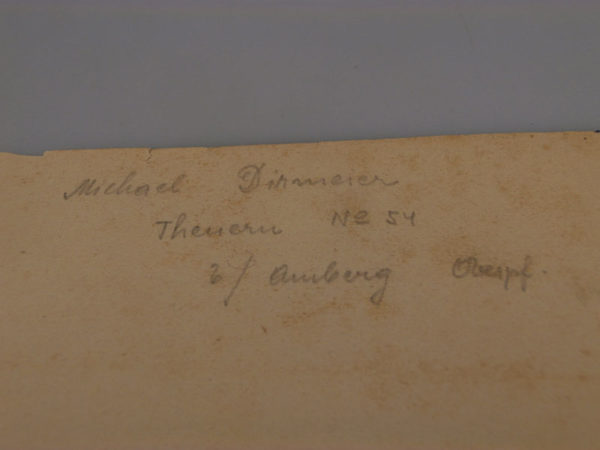 Michael Dirmeier
Theuern No 54
b/ Amberg Oberpf.